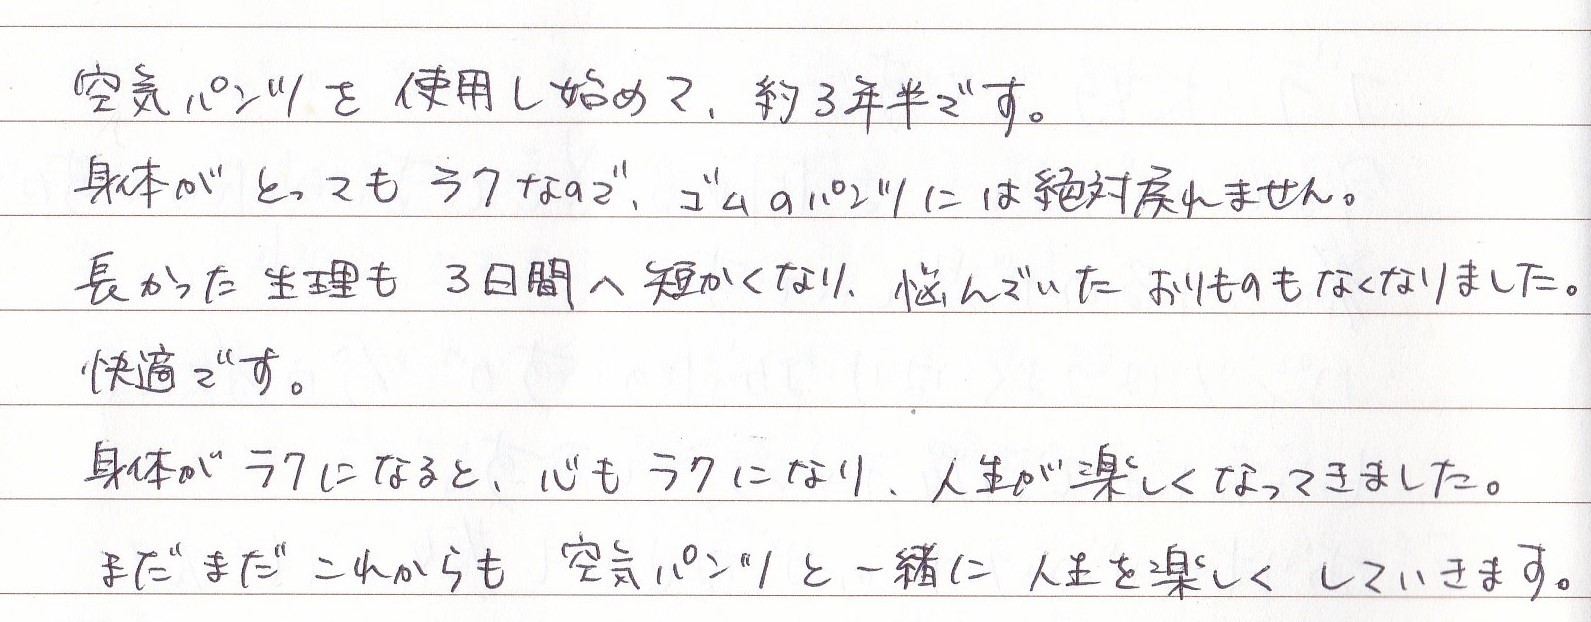 空気パンツを使用し始めて、約3年半です。
身体がとってもラクなので、ゴムのパンツには絶対戻れません。
長かった生理も3日間へ短かくなり、悩んでいたおりものもなくなりました。
快適です。
身体がラクになると、心もラクになり、人生が楽しくなってきました。
まだまだこれからも空気パンツと一緒に人生を楽しくしていきます。